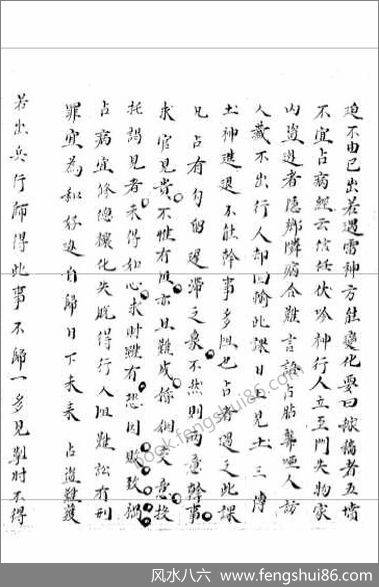 迫不由已出若遇雷神方能變化要曰
不宜占病經云信任伏吟神行人立至門失物家
内盜逃者隱鄉隣病合難言語占胎聾啞人訪
人藏不出行人却回 此課日上見土三傳
土神進退不能幹事多阻也占者遇之此課
凡占有勾留遲滯之象不然則兩意幹事
求官見貴不 有 亦且難成 個人意投
托謁見者未得如心求財雖有恐因財致
占病宜修德禳化失脫得行人阻難訟有刑
罪宜為和好逃自歸日下未來 占盜難獲
若出兵行師得此事不歸一多見 時不得
book.fengshui86.com
风水八六 - www.fengshui86.com